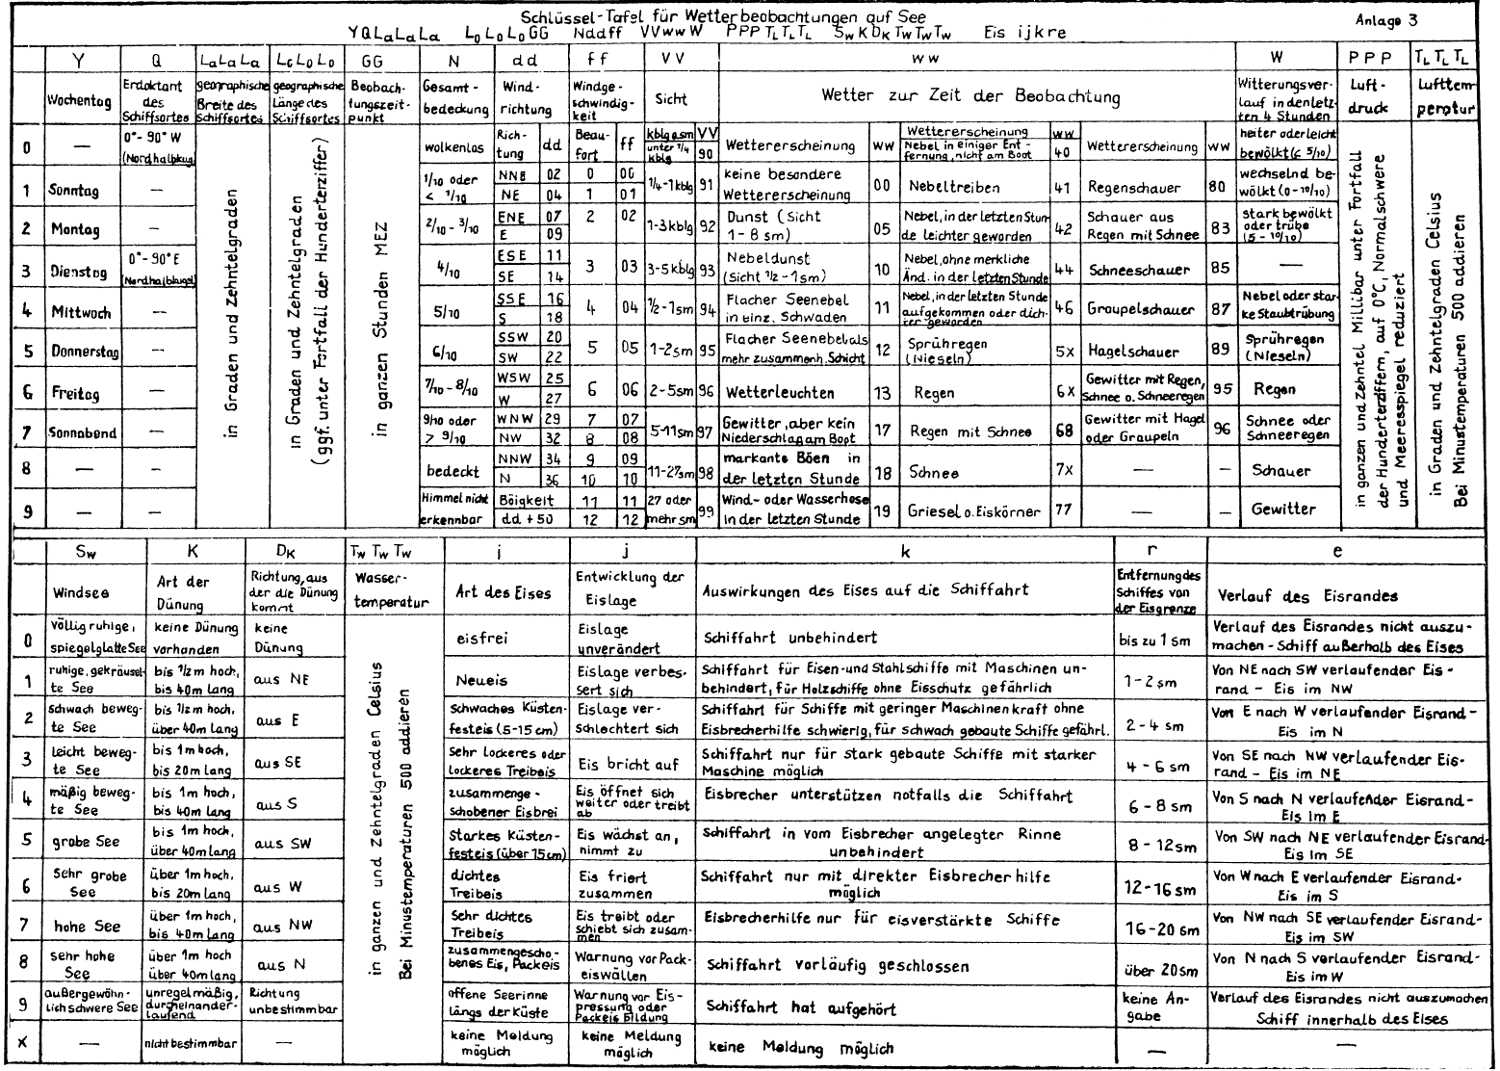 Schlüssel-Tafel für Wetterbeobachtungen auf See
Anlage 3
YQLaLaLa LoLoLoGG Nddff VVwwW PPPTLTLTL SwKDKTwTwTw Eis ijkre
Y Q LaLaLa LoLoLo GG N dd ff VV ww W PPP TLTLTL
Wochentag
Erdoktant des Schiffsortes
geographische Breite des Schiffsortes
geographische Länge des Schiffsortes
Beobachtungszeitpunkt
Gesamtbedeckung
Windrichtung
Windgeschwindigkeit
Sicht
Wetter zur Zeit der Beobachtung
Witterungsverlauf in den letzten 4 Stunden
Luftdruck
Lufttemperatur
in Graden und Zehntelgraden
in Graden und Zehntelgraden
(ggf. unter Fortfall der Hunderterziffer)
in ganzen Stunden MEZ
in ganzen und Zehntel Millibar unter Fortfall
der Hunderterziffern, auf 0°C, Normalschwere
und Meeresspiegel reduziert
in Graden und Zehntelgraden Celsius
Bei Minustemperaturen 500 addieren
0 — 0°- 90° W (Nordhalbkug. wolkenlos Richtung dd Beaufort ff kblg o.sm VV unter 1/4 kblg 90 Wettererscheinung ww Wettererscheinung ww Nebel in einiger Entfernung, nicht am Boot 40 Wettererscheinung ww heiter oder leicht bewölkt (< 5/10)
1 Sonntag — 1/10 oder < 1/10 NNE 02 NE 04 0 00 1 01 1/4-1kblg 91 keine besondere Wettererscheinung 00 Nebeltreiben 41 Regenschauer 80 wechselnd bewölkt (0-10/10)
2 Montag — 2/10 - 3/10 ENE 07 E 09 2 02 1-3kblg 92 Dunst (Sicht 1-8 sm) 05 Nebel, in der letzten Stunde leichter geworden 42 Schauer aus Regen mit Schnee 83 stark bewölkt oder trübe (5 - 10/10)
3 Dienstag 0°- 90° E (Nordhalbkugel 4/10 ESE 11 SE 14 3 03 3-5kblg 93 Nebeldunst (Sicht 1/2 - 1sm) 10 Nebel, ohne merkliche Änd. in der letzten Stunde 44 Schneeschauer 85 —
4 Mittwoch — 5/10 SSE 16 S 18 4 04 1/2-1sm 94 Flacher Seenebel in einz. Schwaden 11 Nebel, in der letzten Stunde aufgekommen oder dichter geworden 46 Graupelschauer 87 Nebel oder starke Staubtrübung
5 Donnerstag — 6/10 SSW 20 SW 22 5 05 1-2sm 95 Flacher Seenebel als mehr zusammenh. Schicht 12 Sprühregen (Nieseln) 5x Hagelschauer 89 Sprühregen (Nieseln)
6 Freitag — 7/10 - 8/10 WSW 25 W 27 6 06 2-5sm 96 Wetterleuchten 13 Regen 6x Gewitter mit Regen, Schnee o. Schneeregen 95 Regen
7 Sonnabend — 9/10 oder > 9/10 WNW 29 NW 32 7 07 8 08 5-11sm 97 Gewitter, aber kein Niederschlag am Boot 17 Regen mit Schnee 68 Gewitter mit Hagel oder Graupeln 96 Schnee oder Schneeregen
8 — — bedeckt NNW 34 N 36 9 09 10 10 11-27sm 98 markante Böen in der letzten Stunde 18 Schnee 7x — — Schauer
9 — — Himmel nicht erkennbar Böigkeit dd + 50 11 11 12 12 27 oder mehr sm 99 Wind- oder Wasserhose in der letzten Stunde 19 Griesel o. Eiskörner 77 — — Gewitter
Sw K DK TwTwTw i j k r e
Windsee
Art der Dünung
Richtung, aus der die Dünung kommt
Wassertemperatur
Art des Eises
Entwicklung der Eislage
Auswirkungen des Eises auf die Schiffahrt
Entfernung des Schiffes von der Eisgrenze
Verlauf des Eisrandes
in ganzen und Zehntelgraden Celsius
Bei Minustemperaturen 500 addieren
0 völlig ruhige, spiegelglatte See keine Dünung vorhanden keine Dünung eisfrei Eislage unverändert Schiffahrt unbehindert bis zu 1 sm Verlauf des Eisrandes nicht auszumachen - Schiff außerhalb des Eises
1 ruhige, gekräuselte See bis 1/2 m hoch, bis 40m lang aus NE Neueis Eislage verbessert sich Schiffahrt für Eisen- und Stahlschiffe mit Maschinen unbehindert, für Holzschiffe ohne Eisschutz gefährlich 1-2 sm Von NE nach SW verlaufender Eisrand - Eis im NW
2 schwach bewegte See bis 1/2 m hoch, über 40m lang aus E Schwaches Küstenfesteis (5-15 cm) Eislage verschlechtert sich Schiffahrt für Schiffe mit geringer Maschinenkraft ohne Eisbrecherhilfe schwierig, für schwach gebaute Schiffe gefährl. 2-4 sm Von E nach W verlaufender Eisrand - Eis im N
3 leicht bewegte See bis 1m hoch, bis 20m lang aus SE Sehr lockeres oder lockeres Treibeis Eis bricht auf Schiffahrt nur für stark gebaute Schiffe mit starker Maschine möglich 4-6 sm Von SE nach NW verlaufender Eisrand - Eis im NE
4 mäßig bewegte See bis 1m hoch, bis 40m lang aus S zusammengeschobener Eisbrei Eis öffnet sich weiter oder treibt ab Eisbrecher unterstützen notfalls die Schiffahrt 6-8 sm Von S nach N verlaufender Eisrand - Eis im E
5 grobe See bis 1m hoch, über 40m lang aus SW Starkes Küstenfesteis (über 15 cm) Eis wächst an, nimmt zu Schiffahrt in vom Eisbrecher angelegter Rinne unbehindert 8-12sm Von SW nach NE verlaufender Eisrand - Eis im SE
6 Sehr grobe See über 1m hoch, bis 20m lang aus W dichtes Treibeis Eis friert zusammen Schiffahrt nur mit direkter Eisbrecherhilfe möglich 12-16 sm Von W nach E verlaufender Eisrand - Eis im S
7 hohe See über 1m hoch, bis 40m lang aus NW Sehr dichtes Treibeis Eis treibt oder schiebt sich zusammen Eisbrecherhilfe nur für eisverstärkte Schiffe 16-20 sm Von NW nach SE verlaufender Eisrand - Eis im SW
8 sehr hohe See über 1m hoch über 40m lang aus N zusammengeschobenes Eis, Packeis Warnung vor Packeiswällen Schiffahrt vorläufig geschlossen über 20sm Von N nach S verlaufender Eisrand - Eis im W
9 außergewöhnlich schwere See unregelmäßig, durcheinanderlaufend Richtung unbestimmbar offene Seerinne längs der Küste Warnung vor Eispressung oder Packeisbildung Schiffahrt hat aufgehört keine Angabe Verlauf des Eisrandes nicht auszumachen Schiff innerhalb des Eises
x — nicht bestimmbar — keine Meldung möglich keine Meldung möglich keine Meldung möglich — —